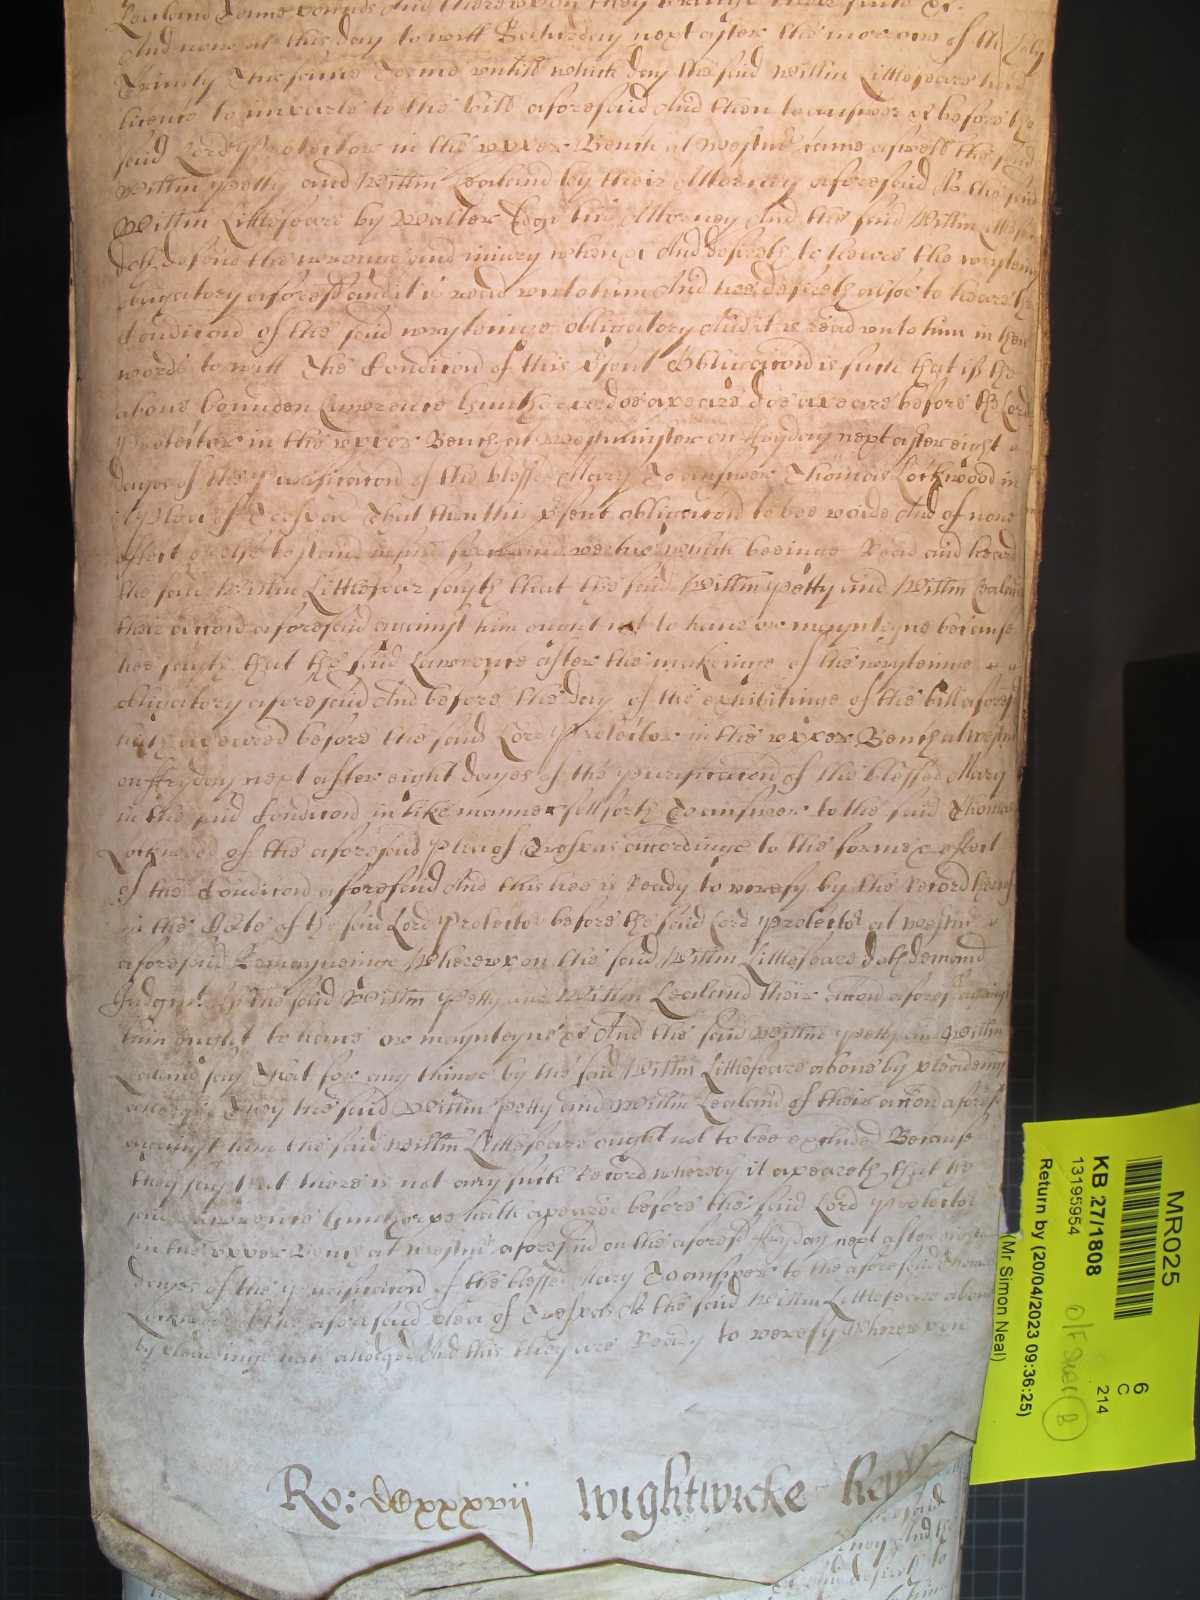 Lealand Tenne pounds And thereupon they bringe their suite &c.
And now at this day to witt Saturday next after the morrow of the holy
Trinity This same Terme untill which day the said Willm Littlefeare had
licence to imparle to the bill aforesaid And then to answer &c before the
said Lord Protector in the upper Bench at Westmr came aswell the said
Willm Petty and Willm Lealand by their Attorney aforesaid As the said
Willm Littlefeare by Walter his Attorney And the said Willm Littlefeare
doth defend the wronge and iniury when &c And desireth to heare the wryteinge
obligatory aforesd and it is read unto him And hee desireth alsoe to heare the
Condicon of the said wryteinge obligatory And it is read unto him in theis
words to witt The Condicon of this psent Obligacon is such that if the
above bounden Lawrence doe appeare before the Lord
Protector in the upper Bench at Westminster on Fryday next after eight
dayes of the Purificacon of the blessed Mary To answer Thomas Lockwood in
a Plea of Trespas That then this psent obligacon to bee voide And of none
effect or else to stand in full force and vertue which beeinge Read and heard
the said Willm Littlefear sayth that the said Willm Petty and Willm Lealand
their accon aforesaid against him ought not to have or maynteyne because
hee sayth that the said Lawrence after the makeinge of the wryteinge
obligatory aforesaid And before the day of the exhibitinge of the bill aforesd
hath appeared before the said Lord Protector in the upper Bench at Westmr
on Fryday next after eight dayes of the Purificacon of the blessed Mary
in the said Condicon in like manner sett forth To answer to the said Thomas
Lockwood of the aforesaid Plea of Trespas accordinge to the forme & effect
of the Condicon aforesaid And this hee is Ready to verefy by the Record thereof
in the Co~te of the said Lord Protector before the said Lord Protector at Westmr
aforesaid Remayneinge Whereupon the said Willm Littlefeare doth demand
Judgmt If the said Willm Petty and Willm Lealand their accon aforesd against
him ought to have or maynteyne &c And the said Willm Petty and Willm
Lealand say That for any thinge by the said Willm Littlefeare above by pleadeinge
alledged They the said Willm Petty and Willm Lealand of their accon aforesd
against him the said Willm Littlefeare ought not to bee excluded Because
they say that there is not any such Record whereby it appeareth that the
said Lawrence hath apeared before the said Lord Protector
in the upper Bench at Westmr aforesaid on the aforesd Fryday next after eight
dayes of the Purificacon of the blessed Mary To answer to the aforesaid Thomas
Lockwood of the aforesaid plea of Trespas As the said Willm Littlefeare above
by pleadeinge hath alledged And this they are Ready to verefy Whereupon
Ro: xxxvii Wightwicke
MR025
6
C
214
KB 27/1808
13195954
Return by (20/04/2023 09:36:25)
(Mr Simon Neal)
B